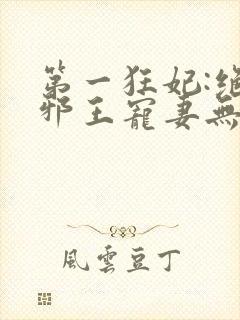 第一狂妃:绝
邪王寵妻無
風雲豆丁